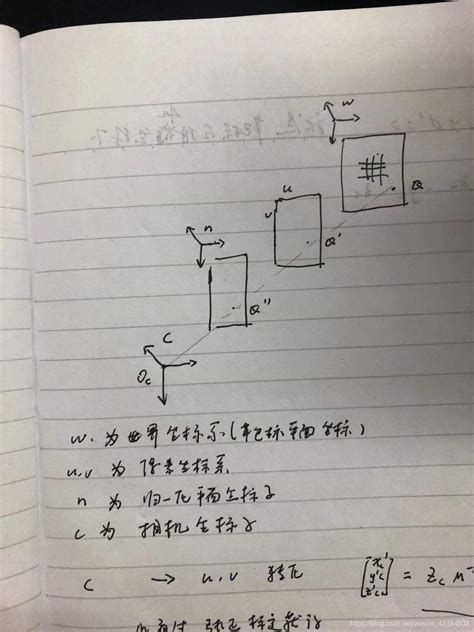 w
Q
u
v
Q'
n
Q''
C
Oc
w. 为世界坐标系(靶标平面坐标)
u,v 为像素坐标系
n 为归一化平面坐标系
c 为相机坐标系
c → u,v 转化 [xc' yc' zc'] = Zc M
https://blog.csdn.net/weixin_43384504